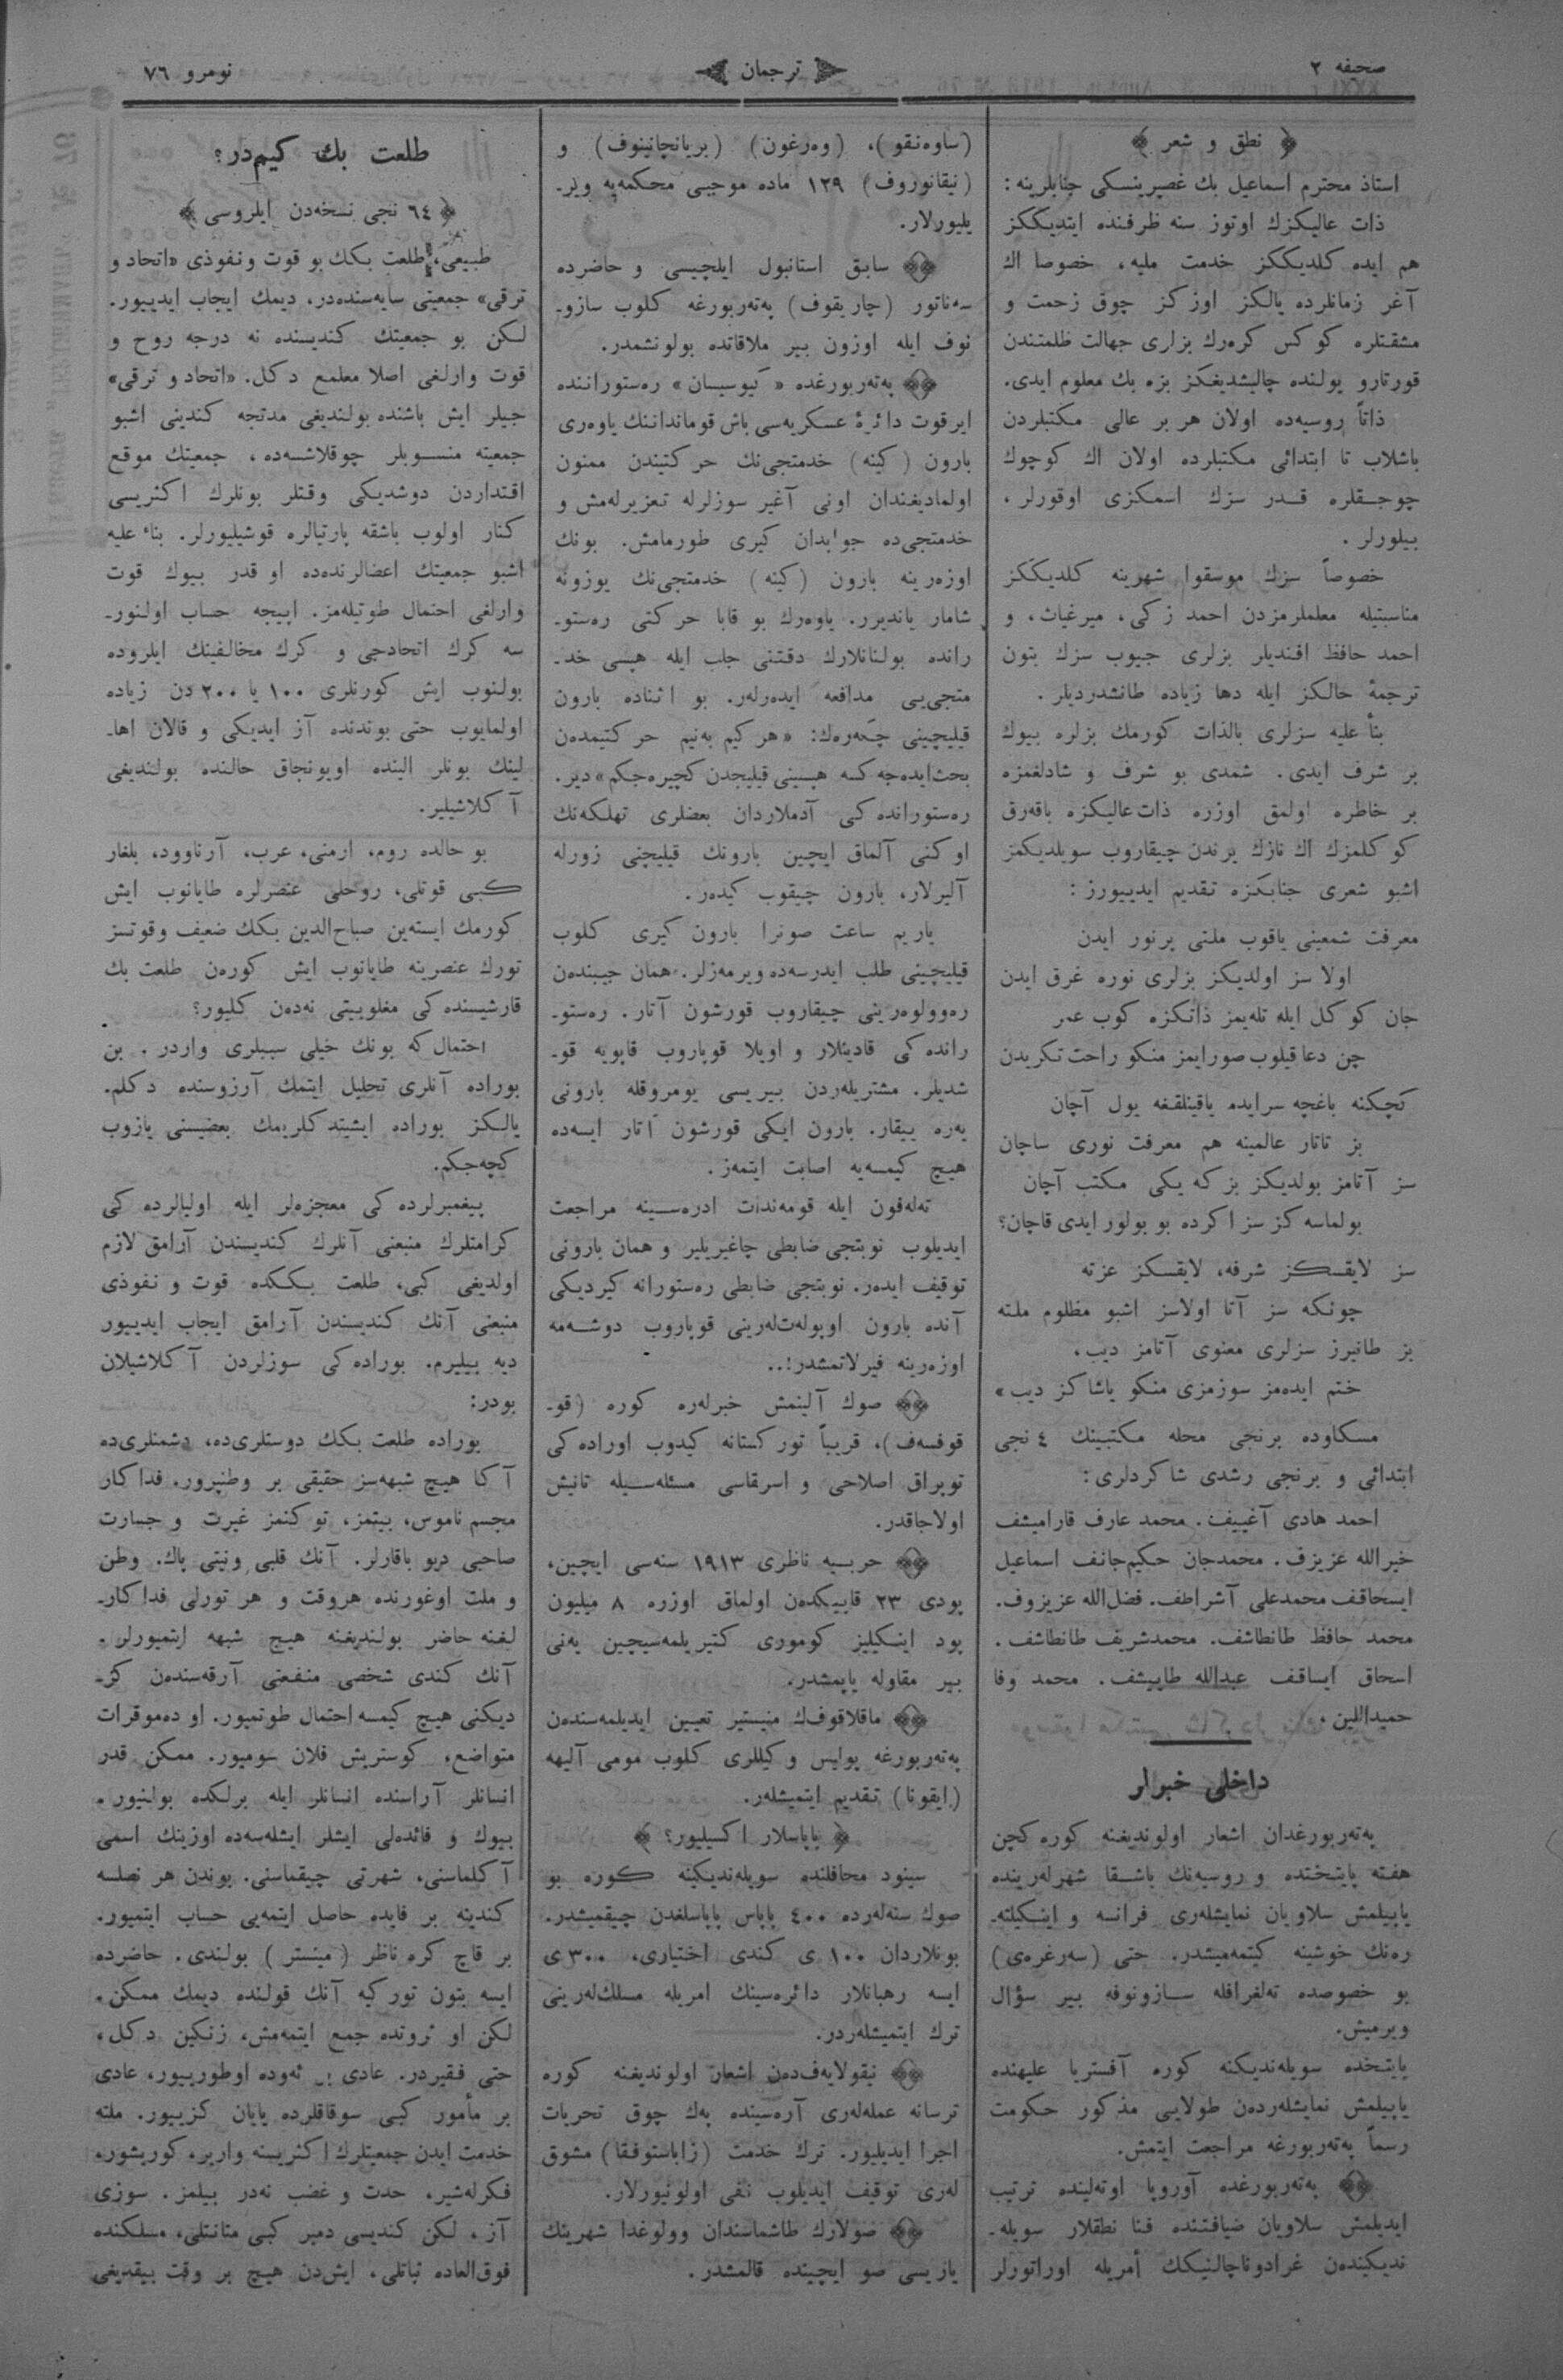 صحیفه ٢
ترجمان
نومرو ٧٦
﴿ نطق و شعر ﴾
استاذ محترم اسماعیل بك غصپرینسكی جنابلرینه :
ذات عالیكزك اوتوز سنه ظرفنده ایتدیككز
هم ایده كلدیككز خدمت ملیه، خصوصا اك
آغر زمانلرده یالكز اوزكز چوق زحمت و
مشقتلره كوكس كره‌رك بزلری جهالت ظلمتندن
قورتارو یولنده چالیشدیغكز بزه بك معلوم ایدی.
ذاتاً روسیه‌ده اولان هر بر عالی مكتبلردن
باشلاب تا ابتدائی مكتبلرده اولان اك كوچوك
چوجقلره قدر سزك اسمكزی اوقورلر،
بیلورلر.
خصوصاً سزك موسقوا شهرینه كلدیككز
مناسبتیله معلملرمزدن احمد زكی، میرغیاث، و
احمد حافظ افندیلر بزلری جیوب سزك بتون
ترجمهٔ حالكز ایله دها زیاده طانشدردیلر.
بنأ علیه سزلری بالذات كورمك بزلره بیوك
بر شرف ایدی. شمدی بو شرف و شادلغمزه
بر خاطره اولمق اوزره ذات عالیكزه باقه‌رق
كوكلمزك اك نازك یرندن چیقاروب سویلدیكمز
اشبو شعری جنابكزه تقدیم ایدییورز :
معرفت شمعینی یاقوب ملتی پرنور ایدن
اولا سز اولدیكز بزلری نوره غرق ایدن
جان كوكل ایله تله‌یمز ذاتكزه كوب عمر
چن دعا قیلوب صورایمز منكو راحت تكریدن
كچكنه باغچه سرایده یاقینلقغه یول آچان
بز تاتار عالمینه هم معرفت نوری ساچان
سز آتامز بولدیكز بزكه یكی مكتب آچان
بولماسه كز سز اكرده بو بولور ایدی قاچان؟
سز لایقسكز شرفه، لایقسكز عزته
چونكه سز آتا اولاسز اشبو مظلوم ملته
بز طانیرز سزلری معنوی آتامز دیب،
ختم ایده‌مز سوزمزی منكو یاشاكز دیب»
مسكاوده برنجی محله مكتبینك ٤ نجی
ابتدائی و برنجی رشدی شاكردلری:
احمد هادی آغییف. محمد عارف قارامیشف
خیرالله عزیزف. محمدجان حكیم‌جانف اسماعیل
ایسحاقف محمدعلی آشراطف. فضل‌الله عزیزوف.
محمد حافظ طانطاشف. محمدشریف طانطاشف.
اسحاق ایساقف عبدالله طاپیشف. محمد وفا
حمیداللین.
داخلی خبرلر
په‌ته‌ربورغدان اشعار اولوندیغنه كوره كچن
هفته پایتختده و روسیه‌نك باشقا شهرلرینده
یاپیلمش سلاویان نمایشله‌ری فرانسه و اینكیلته‌ـ
ره‌نك خوشینه كیتمه‌میشدر. حتی (سه‌رغره‌ی)
بو خصوصده ته‌لغرافله سازونوفه بیر سؤال
ویرمیش.
پایتخده سویله‌ندیكنه كوره آفستریا علیهنده
یاپیلمش نمایشله‌ردن طولایی مذكور حكومت
رسماً په‌ته‌ربورغه مراجعت ایتمش.
په‌ته‌ربورغده آوروپا اوته‌لینده ترتیب
ایدیلمش سلاویان ضیافتنده فنا نطقلار سویله‌ـ
ندیكیندن غرادوناچالنیكك أمریله اوراتورلر
(ساوه‌نقو)، (وه‌رغون) (بریانچانینوف) و
(نیقانوروف) ١٢٩ ماده موجبی محكمه‌یه ویرـ
یلیورلار.
سابق استانبول ایلچیسی و حاضرده
سه‌ناتور (چاریقوف) په‌ته‌ربورغه كلوب سازوـ
نوف ایله اوزون بیر ملاقاتده بولونشمدر.
په‌ته‌ربورغده «كیوسیسان» ره‌ستوراننده
ایرقوت دائرهٔ عسكریه‌سی باش قوماندانینك یاوه‌ری
بارون (كینه) خدمتجی‌نك حركتیندن ممنون
اولمادیغندان اونی آغیر سوزلرله تعزیرله‌مش و
خدمتجی‌ده جوابدان كیری طورمامش. بونك
اوزه‌رینه بارون (كینه) خدمتجی‌نك یوزونه
شامار یاندیرر. یاوه‌رك بو قابا حركتی ره‌ستوـ
رانده بولنانلارك دقتنی جلب ایله هپسی خدـ
متجی‌یی مدافعه ایده‌رله‌ر. بو اثناده بارون
قیلیچینی چكه‌ره‌ك: «هركیم بنیم حركتیمدن
بحث‌ایده‌جه كسه هپسینی قیلیجدن كچیره‌جكم» دیر.
ره‌ستورانده‌كی آدملاردان بعضلری تهلكه‌نك
اوكنی آلماق ایچین بارونك قیلیچنی زورله
آلیرلار، بارون چیقوب كیده‌ر.
یاریم ساعت صونرا بارون كیری كلوب
قیلیچینی طلب ایدرسه‌ده ویرمه‌زلر. همان جیبندن
ره‌وولوه‌رینی چیقاروب قورشون آتار. ره‌ستوـ
رانده‌كی قادینلار و اویلا قوپاروب قاپویه قوـ
شدیلر. مشتریله‌ردن بیریسی یومروقله بارونی
یه‌ره ییقار. بارون ایكی قورشون آتار ایسه‌ده
هیچ كیمسه‌یه اصابت ایتمه‌ز.
ته‌له‌فون ایله قومه‌ندات ادره‌سینه مراجعت
ایدیلوب نوبتجی ضابطی چاغیریلیر و همان بارونی
توقیف ایده‌ر. نوبتجی ضابطی ره‌ستورانه كیردیكی
آنده بارون اوپوله‌ت‌له‌رینی قوپاروب دوشه‌مه
اوزه‌رینه فیرلاتمشدر!..
صوك آلینمش خبرله‌ره كوره (قوـ
قوفسه‌ف)، قریباً توركستانه كیدوب اوراده‌كی
توپراق اصلاحی و اسرقاسی مسئله‌سیله تانیش
اولاجاقدر.
حربیه ناظری ١٩١٣ سنه‌سی ایچین،
پودی ٢٣ قاپیكدن اولماق اوزره ٨ میلیون
پود اینكلیز كوموری كتیریلمه‌سیچین یه‌نی
بیر مقاوله یاپمشدر.
ماقلاقوف‌ك منیستیر تعیین ایدیلمه‌سندن
په‌ته‌ربورغه پولیس وكیللری كلوب مومی آلیهه
(ایقونا) تقدیم ایتمیشله‌ر.
﴿ پاپاسلار اكسیلیور؟ ﴾
سینود محافلنده سویله‌ندیكینه كوره بو
صوك سنه‌له‌رده ٤٠٠ پاپاس پاپاسلغدن چیقمیشدر.
بونلاردان ١٠٠ ی كندی اختیاری، ٣٠٠ ی
ایسه رهبانلار دائره‌سینك امریله مسلك‌له‌رینی
ترك ایتمیشله‌ردر.
نیقولایه‌ف‌دن اشعار اولوندیغنه كوره
ترسانه عمله‌له‌ری آره‌سینده په‌ك چوق تحریات
اجرا ایدیلیور. ترك خدمت (زاباستوفقا) مشوق
له‌ری توقیف ایدیلوب نفی اولونیورلار.
صولارك طاشماسندان وولوغدا شهرینك
یاریسی صو ایچینده قالمشدر.
طلعت بك كیم‌در؟
﴿ ٦٤ نجی نسخه‌دن ایلروسی ﴾
طبیعی، طلعت بكك بو قوت و نفوذی «اتحاد و
ترقی» جمعیتی سایه‌سنده‌در، دیمك ایجاب ایدییور.
لكن بو جمعیتك كندیسنده نه درجه روح و
قوت وارلغی اصلا معلمع دكل. «اتحاد و ترقی»
جیلر ایش باشنده بولندیغی مدتجه كندینی اشبو
جمعیته منسوبلر چوقلاشسه‌ده، جمعیتك موقع
اقتداردن دوشدیكی وقتلر بونلرك اكثریسی
كنار اولوب باشقه پارتیالره قوشیلیورلر. بناء علیه
اشبو جمعیتك اعضالرنده‌ده او قدر بیوك قوت
وارلغی احتمال طوتیله‌مز. اییجه حساب اولنورـ
سه كرك اتحادجی و كرك مخالفینك ایلروده
بولنوب ایش كورنلری ١٠٠ یا ٢٠٠ دن زیاده
اولمایوب حتی بوندنده آز ایدیكی و قالان اهاـ
لینك بونلر الینده اویونجاق حالنده بولندیغی
آكلاشیلیر.
بو حالده روم، ارمنی، عرب، آرناوود، بلغار
كبی قوتلی، روحلی عنصرلره طایانوب ایش
كورمك ایسته‌ین صباح‌الدین بكك ضعیف وقوتسز
تورك عنصرینه طایانوب ایش كورن طلعت بك
قارشیسنده‌كی مغلوبیتی نه‌دن كلیور؟
احتمال كه بونك خیلی سببلری واردر. بن
بوراده آنلری تحلیل ایتمك آرزوسنده دكلم.
یالكز بوراده ایشیتدكلریمك بعضیسنی یازوب
كچه‌جكم.
پیغمبرلرده‌كی معجزه‌لر ایله اولیالرده‌كی
كرامتلرك منبعنی آنلرك كندیسندن آرامق لازم
اولدیغی كبی، طلعت بككده قوت و نفوذی
منبعنی آنك كندیسندن آرامق ایجاب ایدییور
دیه بیلیرم. بوراده‌كی سوزلردن آكلاشیلان
بودر:
بوراده طلعت بكك دوستلری‌ده، دشمنلری‌ده
آكا هیچ شبهه‌سز حقیقی بر وطنپرور. فداكار
مجسم ناموس، بیتمز، توكنمز غیرت و جسارت
صاحبی دیو باقارلر. آنك قلبی ونیتی پاك. وطن
و ملت اوغورنده هروقت و هر تورلی فداكارـ
لغنه حاضر بولندیغنه هیچ شبهه ایتمیورلر.
آنك كندی شخصی منفعتی آرقه‌سندن كزـ
دیكنی هیچ كیمسه احتمال طوتمیور. او ده‌موقرات
متواضع، كوستریش فلان سومیور. ممكن قدر
انسانلر آراسنده انسانلر ایله برلكده بولنیور.
بیوك و فائده‌لی ایشلر ایشله‌سه‌ده اوزینك اسمی
آكلماسنی، شهرتی چیقماسنی. بوندن هر نصلسه
كندینه بر فایده حاصل ایتمه‌یی حساب ایتمیور.
بر قاچ كره ناظر (مینستر) بولندی. حاضرده
ایسه بتون توركیه آنك قولنده دیمك ممكن.
لكن او ثروتده جمع ایتمه‌مش، زنكین دكل،
حتی فقیردر. عادی بر ئه‌وده اوطورییور، عادی
بر مأمور كبی سوقاقلرده پایان كزییور. ملته
خدمت ایدن جمعیتلرك اكثریسنه واریر، كوریشور،
فكرله‌شیر، حدت و غضب نه‌در بیلمز. سوزی
آز، لكن كندیسی دمیر كبی متانتلی، مسلكنده
فوق‌العاده ثباتلی، ایش‌دن هیچ بر وقت بیقدیغی